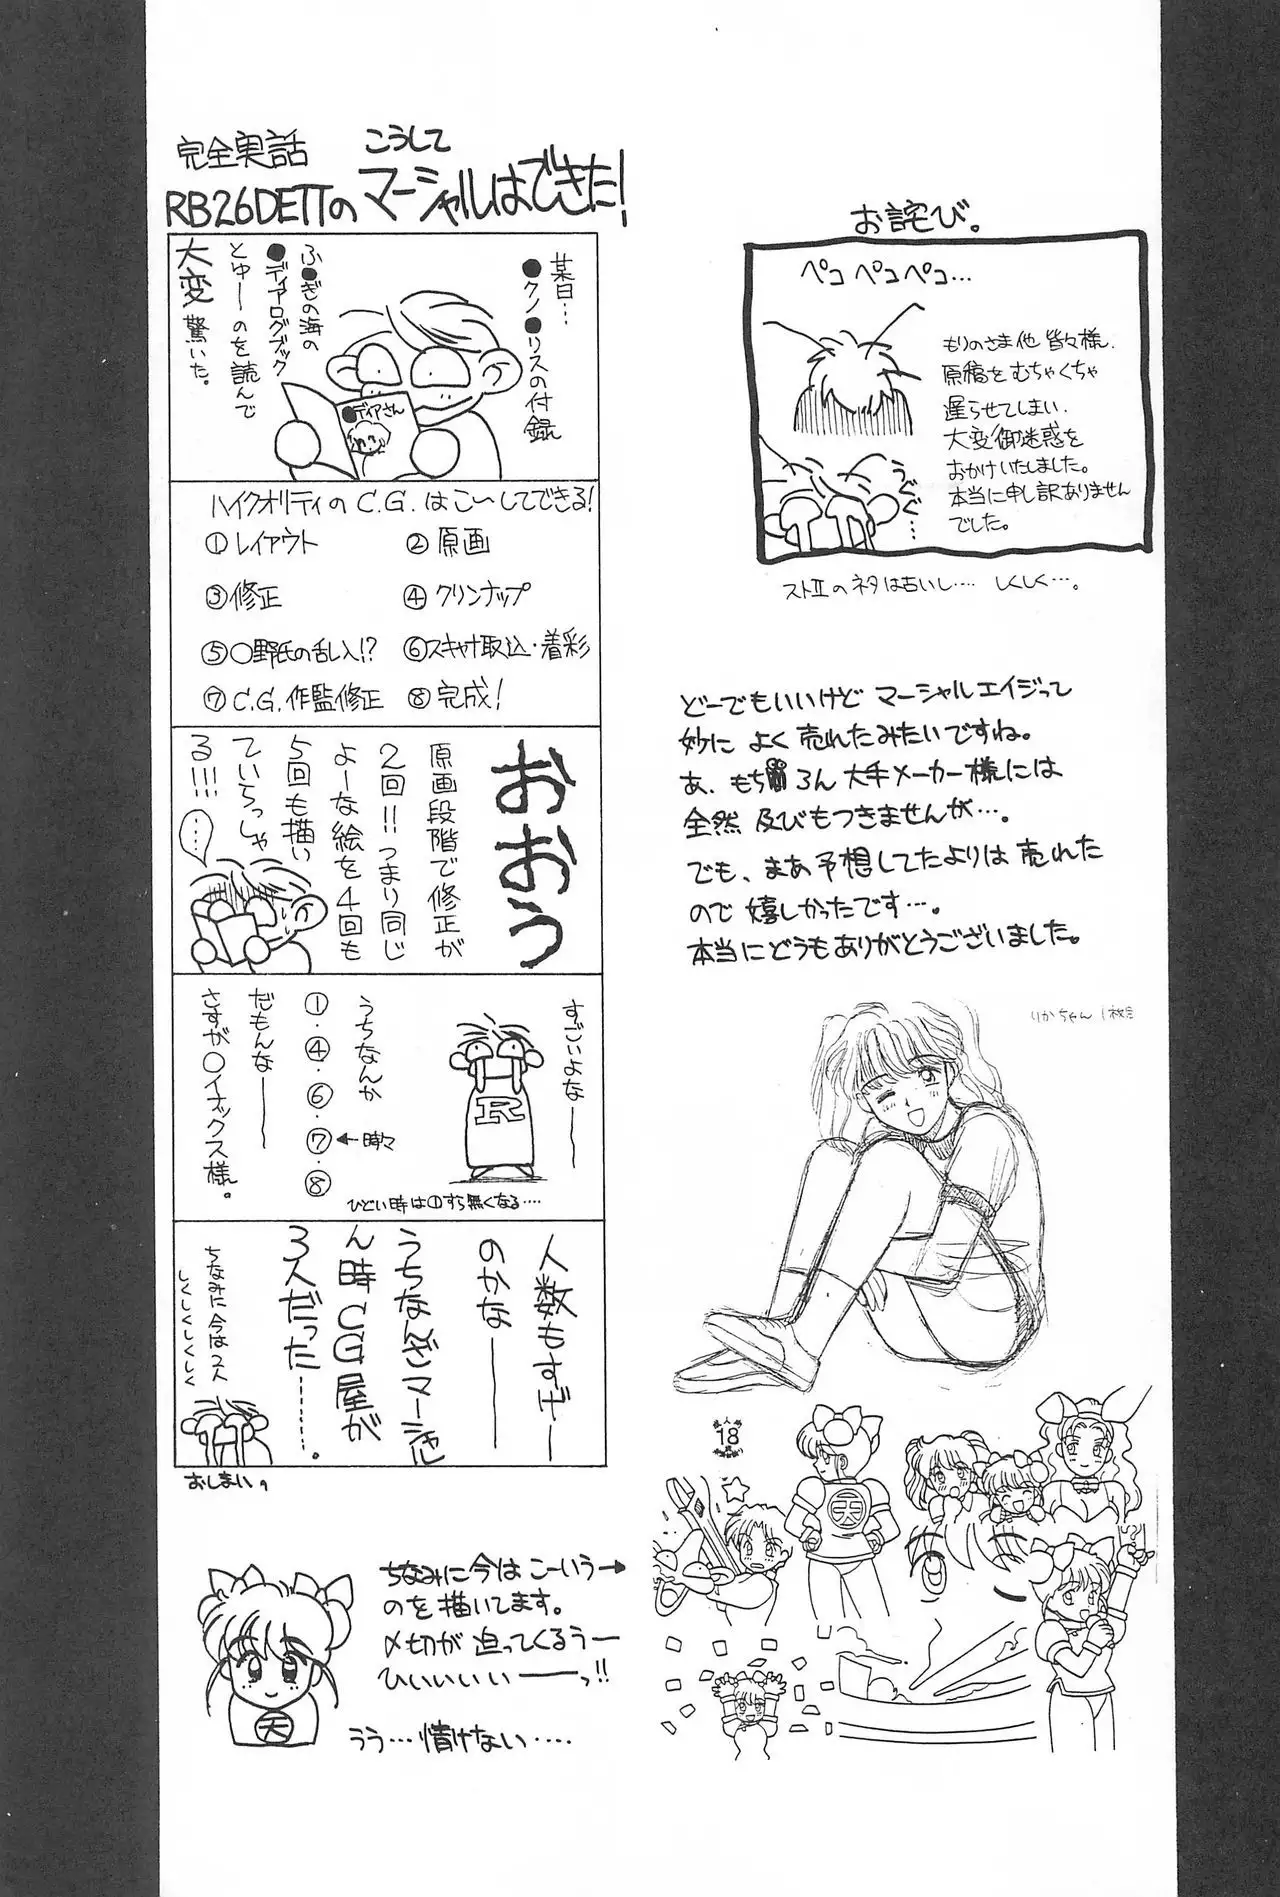 完全実話
こうして
RB26DETTのマーシャルはできた!
某日…
●クノ●リスの付録
ふ●ぎの海の
●ディアログブック
とゆーのを読んで
大変驚いた。
●ディアさん
ハイクオリティのC.G.はこ〜してできる!
①レイアウト ②原画
③修正 ④クリンナップ
⑤○野氏の乱入!? ⑥スキャナ取込・着彩
⑦C.G.作監修正 ⑧完成!
おおう
原画段階で修正が
2回!!つまり同じ
よーな絵を4回も
5回も描い
ていらっしゃ
る!!!
……
すごいよなー
R
うちなんか
①・④・⑥・⑦・⑧
←時々
だもんなー
さすが○イナックス様。
ひどい時は①すら無くなる‥‥
人数もすげー
のかなー
うちなんざマーシャル
ん時CG屋が
3人だった…………。
ちなみに今は2人
しくしくしくしく
おしまい。
ちなみに今はこーいう→
のを描いてます。
〆切が迫ってくるうー
ひぃぃぃぃーっ!!
うう…情けない‥‥‥
天
お詫び。
ペコペコペコ…
もりのさま他皆々様.
原稿をむちゃくちゃ
遅らせてしまい.
大変御迷惑を
おかけいたしました。
本当に申し訳ありません
でした。
うぐぐ…
ストⅡのネタは古いし‥‥ しくしく…。
どーでもいいけどマーシャルエイジって
妙によく売れたみたいですね。
あ、もちろん大手メーカー様には
全然及びもつきませんが…。
でも、まあ予想してたよりは売れた
ので嬉しかったです…。
本当にどうもありがとうございました。
りかちゃん1枚目
18
天